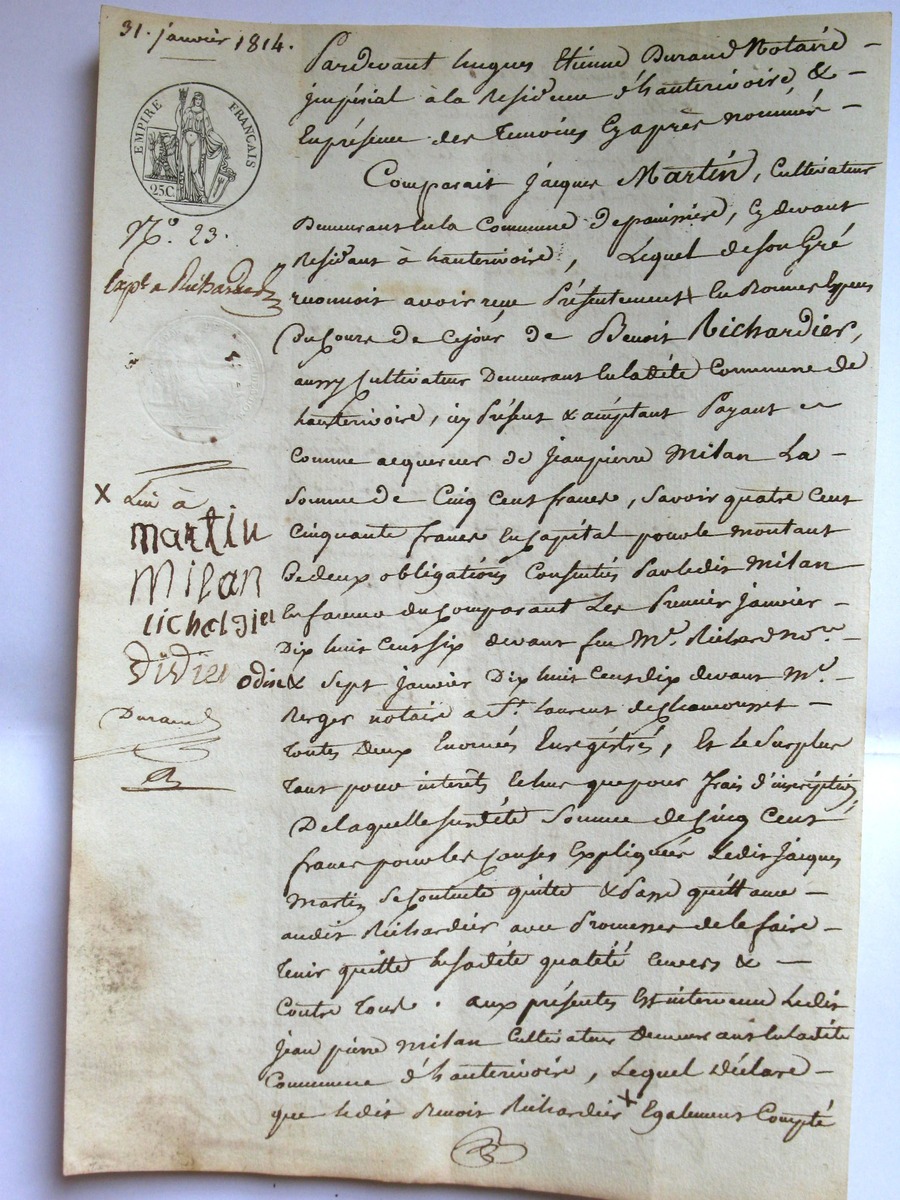 31. janvier 1814.
EMPIRE FRANÇAIS
25C
N.o 23.
Exp.e a Richardier
X Lui à
martin
Milan
richardier
didier
Durand
Pardevant hugues Etienne Durand Notaire –
jmpérial à la Residence d'hauterivoire, & –
En présence des Temoins Cy après nommés –
Comparait jacques Martin, Cultivateur
Demeurant en la Commune de , Cy devant
Residant à hauterivoire, Lequel de son Gré
reconnoit avoir reçu Présentement En Bonnes Especes
Du Cours de Cejour de Benoit Richardier,
aussy Cultivateur Demeurant En ladéte Commune de
hauterivoire, icy Présent & acceptant Payant –
Comme acquereur de jeanpierre Milan La –
Somme de Cinq Cent francs, Savoir quatre Cent
Cinquante francs En Capital pour le montant
De deux obligations Consenties Par ledit Milan
En faveur du Comparant Les Premier janvier –
Dix huit Cent Six devant feu M.e Richard No.re –
odin & Sept janvier Dix huit Cent dix devant M.e
Berger notaire a S.t Laurent de Chamousset –
toutes Deux Enregistrés, Et le Surplus
tant pour interets Echus que pour frais d'inscription,
De laquelle susdéte Somme de Cinq Cent
francs pour les Causes Expliquées Ledit Jacques
Martin se Contente quitte & Passe quittance –
audit Richardier avec Promesse de le faire –
tenir quitte En sadéte qualité Envers & –
Contre tous. aux présentes Est intervenu Ledit
Jean pierre Milan Cultivateur Demeurant En ladéte
Commune d'hauterivoire, Lequel Déclare –
que ledit Benoit Richardier X Egalement Compté